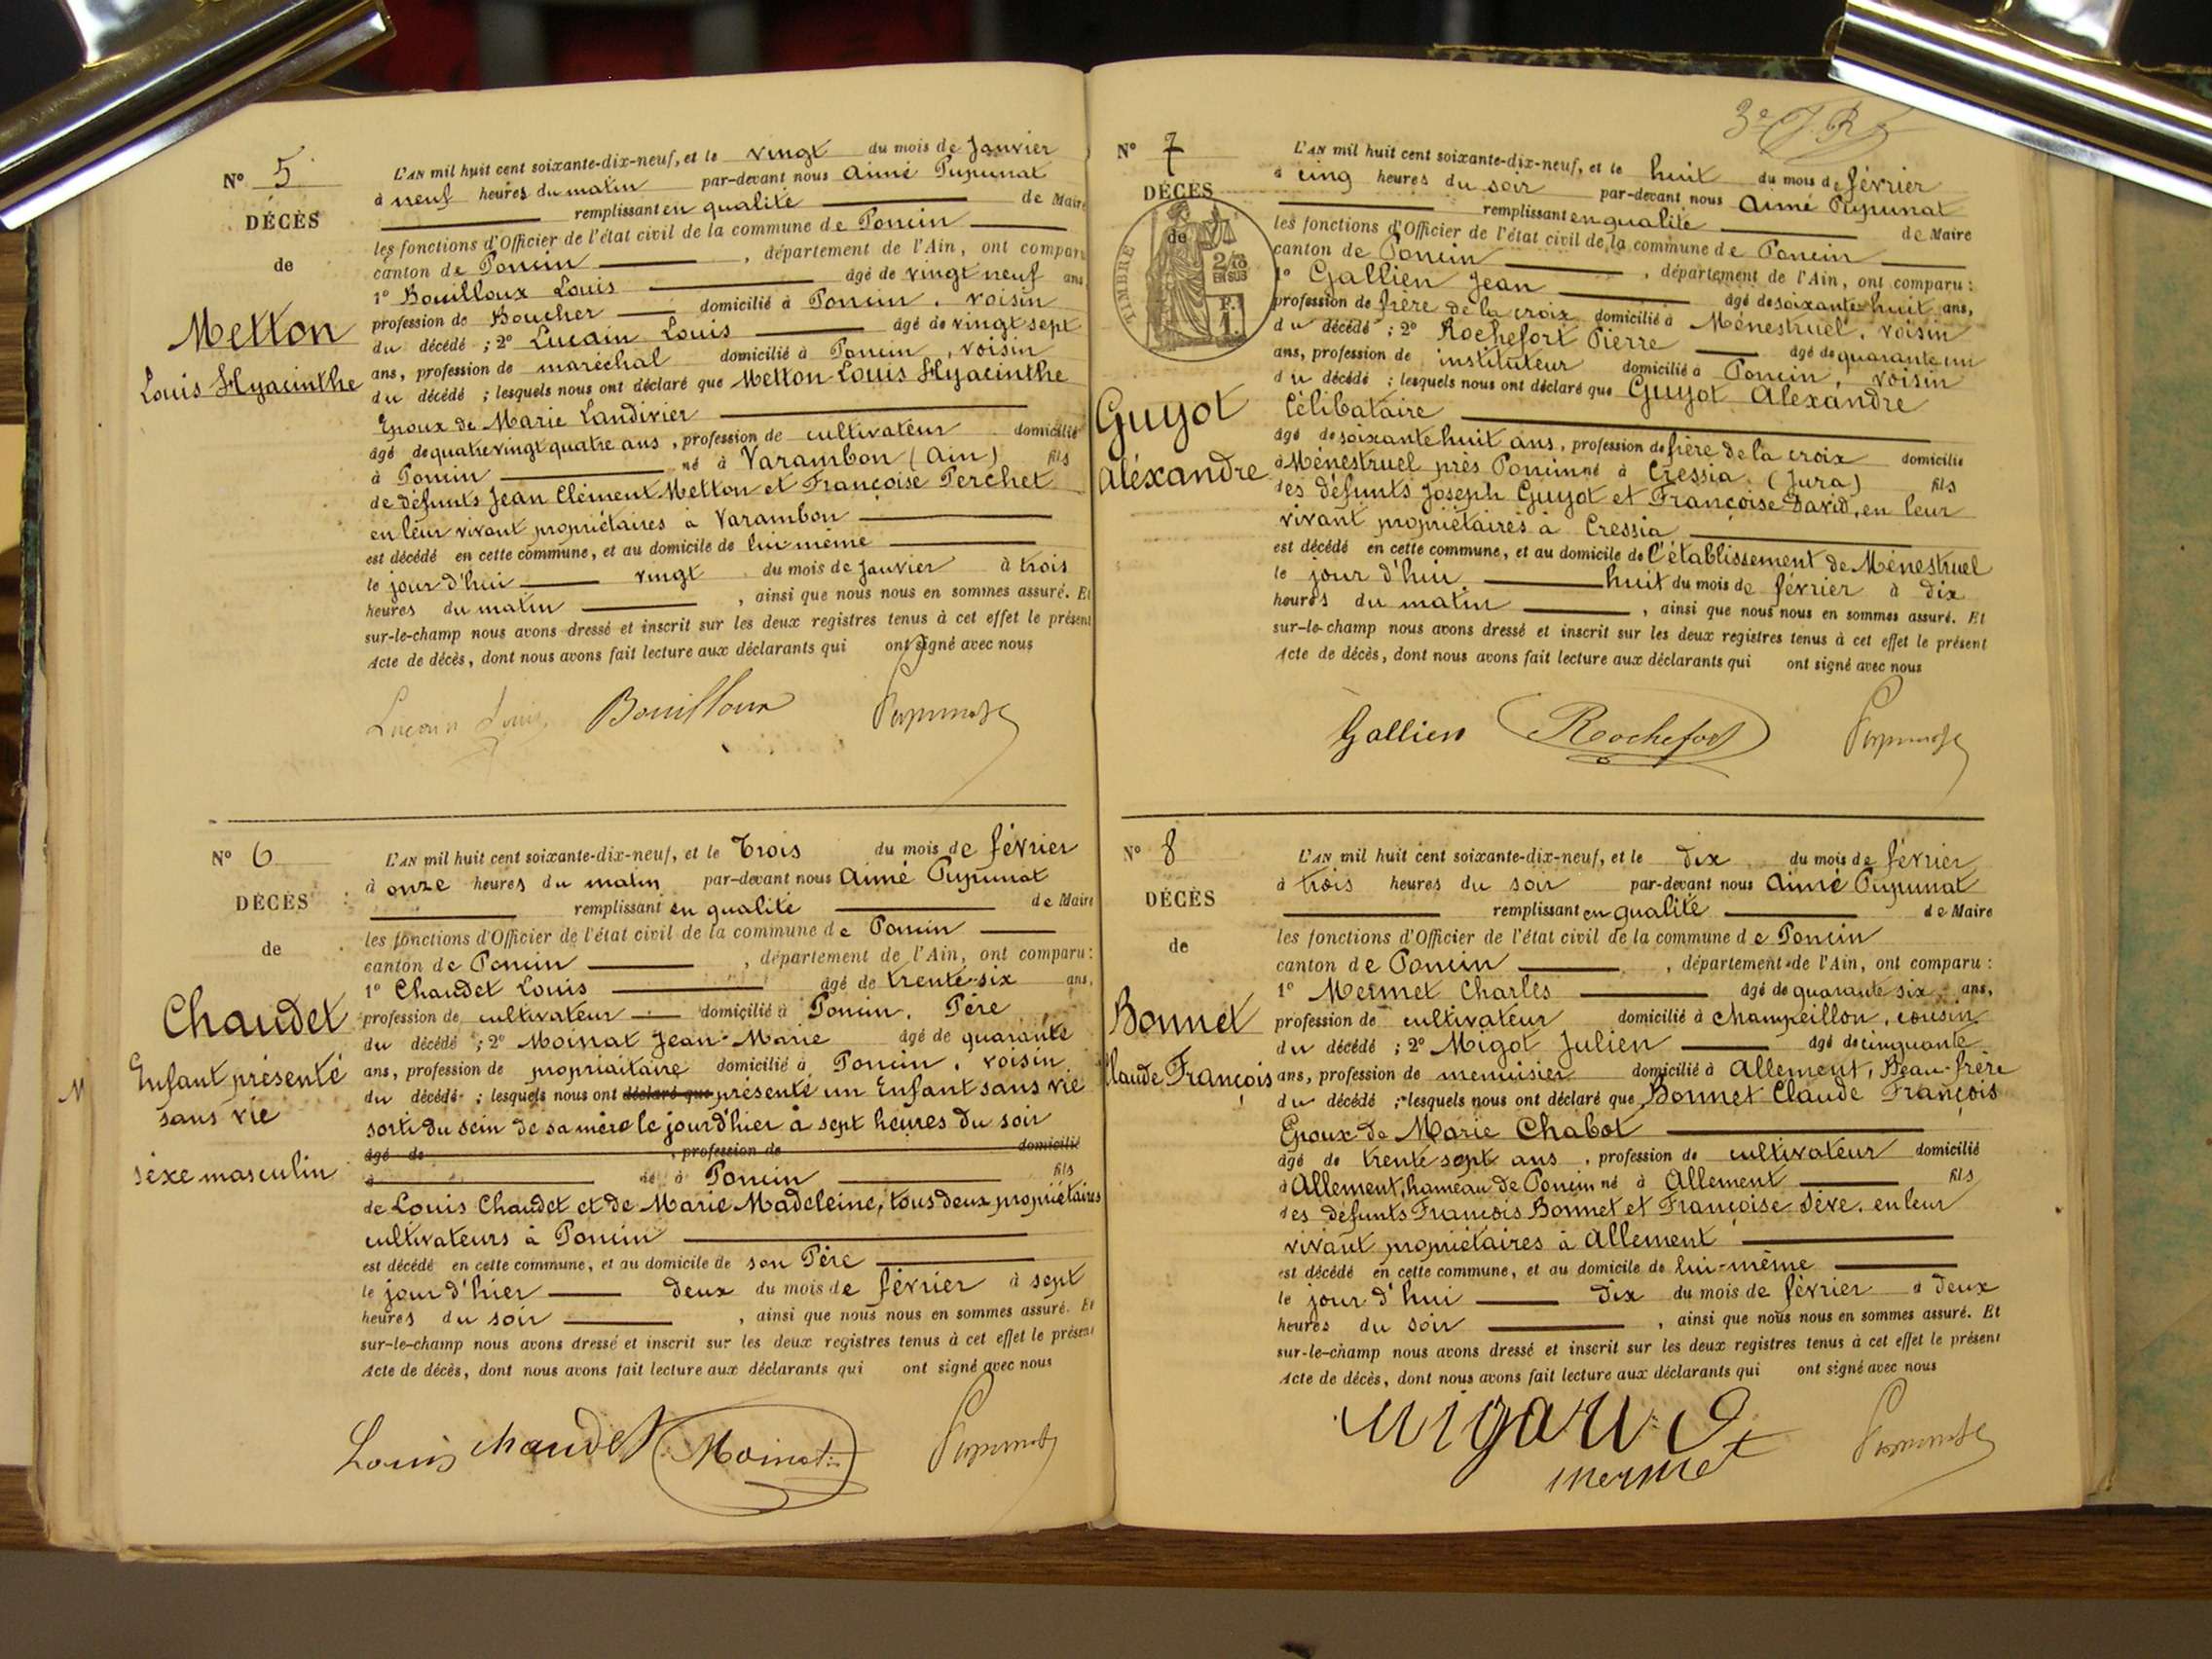 N° 5
DÉCÈS
de
Metton
Louis Hyacinthe
L'AN mil huit cent soixante-dix-neuf, et le vingt du mois de Janvier
à neuf heures du matin par-devant nous Aimé Pupunat
remplissant en qualité de Maire
les fonctions d'Officier de l'état civil de la commune de Poncin
canton de Poncin, département de l'Ain, ont comparu
1° Bouilloux Louis âgé de vingt neuf ans
profession de Boucher domicilié à Poncin, voisin
du décédé ; 2° Lucain Louis âgé de vingt sept
ans, profession de maréchal domicilié à Poncin, voisin
du décédé ; lesquels nous ont déclaré que Metton Louis Hyacinthe
Epoux de Marie Landivier
âgé de quatre vingt quatre ans, profession de cultivateur domicilié
à Poncin né à Varambon (Ain) fils
de défunts Jean Clément Metton et Françoise Perchet
en leur vivant propriétaires à Varambon
est décédé en cette commune, et au domicile de lui-même
le jour d'hui vingt du mois de Janvier à trois
heures du matin, ainsi que nous nous en sommes assuré. Et
sur-le-champ nous avons dressé et inscrit sur les deux registres tenus à cet effet le présent
Acte de décès, dont nous avons fait lecture aux déclarants qui ont signé avec nous
Lucain Louis Bouilloux Pupunat
N° 6
DÉCÈS
de
Chaudet
Enfant présenté
sans vie
sexe masculin
M
L'AN mil huit cent soixante-dix-neuf, et le Trois du mois de février
à onze heures du matin par-devant nous Aimé Pupunat
remplissant en qualité de Maire
les fonctions d'Officier de l'état civil de la commune de Poncin
canton de Poncin, département de l'Ain, ont comparu :
1° Chaudet Louis âgé de trente-six ans,
profession de cultivateur domicilié à Poncin, Père
du décédé ; 2° Moinat Jean-Marie âgé de quarante
ans, profession de propriaitaire domicilié à Poncin, voisin
du décédé ; lesquels nous ont déclaré que présenté un Enfant sans vie
sorti du sein de sa mère le jour d'hier à sept heures du soir
âgé de, profession de domicilié
à né à Poncin fils
de Louis Chaudet et de Marie Madeleine, tous deux propriétaires
cultivateurs à Poncin
est décédé en cette commune, et au domicile de son Père
le jour d'hier deux du mois de février à sept
heures du soir, ainsi que nous nous en sommes assuré. Et
sur-le-champ nous avons dressé et inscrit sur les deux registres tenus à cet effet le présent
Acte de décès, dont nous avons fait lecture aux déclarants qui ont signé avec nous
Louis chaudet Moinat Pupunat
N° 7
DÉCÈS
de
TIMBRE
2/10
EN SUS
Guyot
Aléxandre
L'AN mil huit cent soixante-dix-neuf, et le huit du mois de février
à cinq heures du soir par-devant nous Aimé Pupunat
remplissant en qualité de Maire
les fonctions d'Officier de l'état civil de la commune de Poncin
canton de Poncin, département de l'Ain, ont comparu :
1° Gallien Jean âgé de soixante-huit ans,
profession de frère de la croix domicilié à Ménestruel, voisin
du décédé ; 2° Rochefort Pierre âgé de quarante un
ans, profession de instituteur domicilié à Poncin, voisin
du décédé ; lesquels nous ont déclaré que Guyot Alexandre
Célibataire
âgé de soixante huit ans, profession de frère de la croix domicilié
à Ménestruel près Poncin né à Cressia (Jura) fils
des défunts Joseph Guyot et Françoise David, en leur
vivant propriétaires à Cressia
est décédé en cette commune, et au domicile de l'établissement de Ménestruel
le jour d'hui huit du mois de février à dix
heures du matin, ainsi que nous nous en sommes assuré. Et
sur-le-champ nous avons dressé et inscrit sur les deux registres tenus à cet effet le présent
Acte de décès, dont nous avons fait lecture aux déclarants qui ont signé avec nous
Gallien Rochefort Pupunat
N° 8
DÉCÈS
de
Bonnet
Claude François
L'AN mil huit cent soixante-dix-neuf, et le dix du mois de février
à trois heures du soir par-devant nous Aimé Pupunat
remplissant en qualité de Maire
les fonctions d'Officier de l'état civil de la commune de Poncin
canton de Poncin, département de l'Ain, ont comparu :
1° Mermet Charles âgé de quarante six ans,
profession de cultivateur domicilié à Champeillon, cousin
du décédé ; 2° Migot Julien âgé de cinquante
ans, profession de menuisier domicilié à Allement, Beau-frère
du décédé ; lesquels nous ont déclaré que Bonnet Claude François
Epoux de Marie Chabot
âgé de trente sept ans, profession de cultivateur domicilié
à Allement, hameau de Poncin né à Allement fils
des défunts François Bonnet et Françoise Sève, en leur
vivant propriétaires à Allement
est décédé en cette commune, et au domicile de lui-même
le jour d'hui dix du mois de février à deux
heures du soir, ainsi que nous nous en sommes assuré. Et
sur-le-champ nous avons dressé et inscrit sur les deux registres tenus à cet effet le présent
Acte de décès, dont nous avons fait lecture aux déclarants qui ont signé avec nous
mermet Pupunat